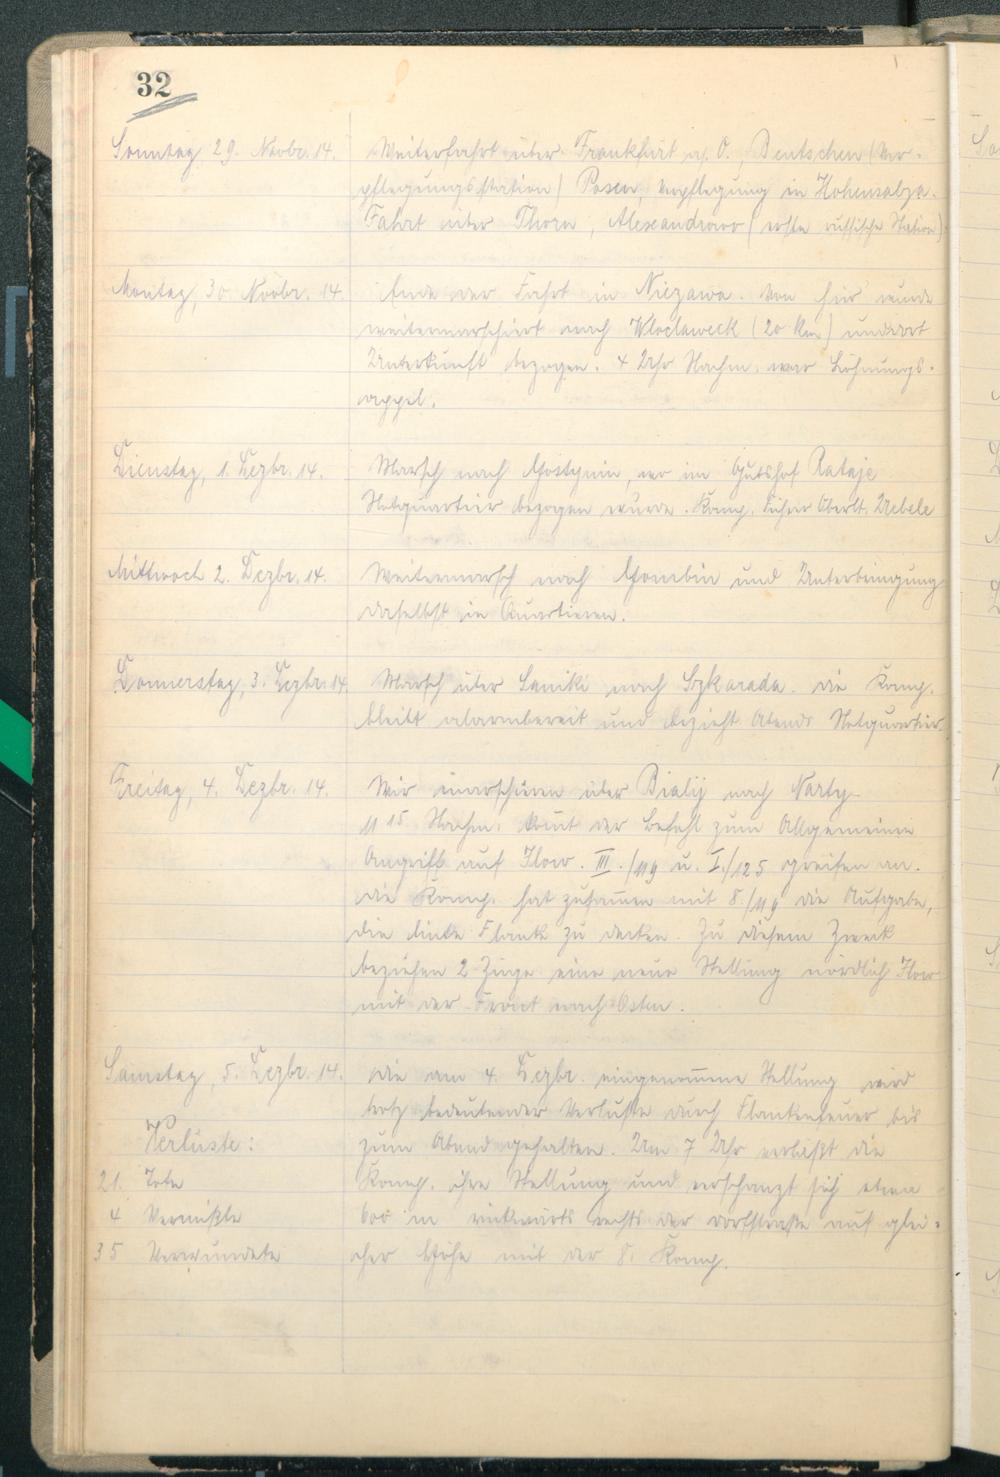 32
Sonntag 29. Novbr. 14. Weiterfahrt über Frankfurt a. O. Bentschen (Ver-
pflegungsstation) Posen, Verpflegung in Hohensalza.
Fahrt über Thorn, Alexandrowo (erste russische Station)
Montag, 30. Novbr. 14. Ende der Fahrt in Niezawa. Von hier wurde
weitermarschiert nach Wloclaweck (20 km) und dort
Unterkunft bezogen. 4 Uhr Nachm. war Löhnungs-
appel.
Dienstag, 1. Dezbr. 14. Marsch nach Gostynin, wo im Gutshof Rataje
Notquartier bezogen wurde. Komp. Führer Oberlt. Uebele
Mittwoch 2. Dezbr. 14. Weitermarsch nach Gombin und Unterbringung
daselbst in Quartieren.
Donnerstag, 3. Dezbr. 14 Marsch über Saniki nach Szkarada. Die Komp.
bleibt alarmbereit und bezieht Abends Notquartier.
Freitag, 4. Dezbr. 14. Wir marschieren über Bialy nach Narty
11 15 Nachm. kommt der Befehl zum Allgemeinen
Angriff auf Ilow. III./119 u. I./125 greifen an.
Die Komp. hat zusammen mit 8./119 die Aufgabe,
die linke Flanke zu decken. Zu diesem Zweck
beziehen 2 Züge eine neue Stellung nördlich Ilow
mit der Front nach Osten.
Samstag, 5. Dezbr. 14. Die am 4. Dezbr. eingenommene Stellung wird
trotz bedeutender Verluste durch Flankenfeuer bis
Verluste: zum Abend gehalten. Um 7 Uhr verläßt die
21 Tote Komp. ihre Stellung und verschanzt sich etwa
4 Vermißte 600 m rückwärts rechts der Dorfstraße auf glei-
35 Verwundete cher Höhe mit der 8. Komp.